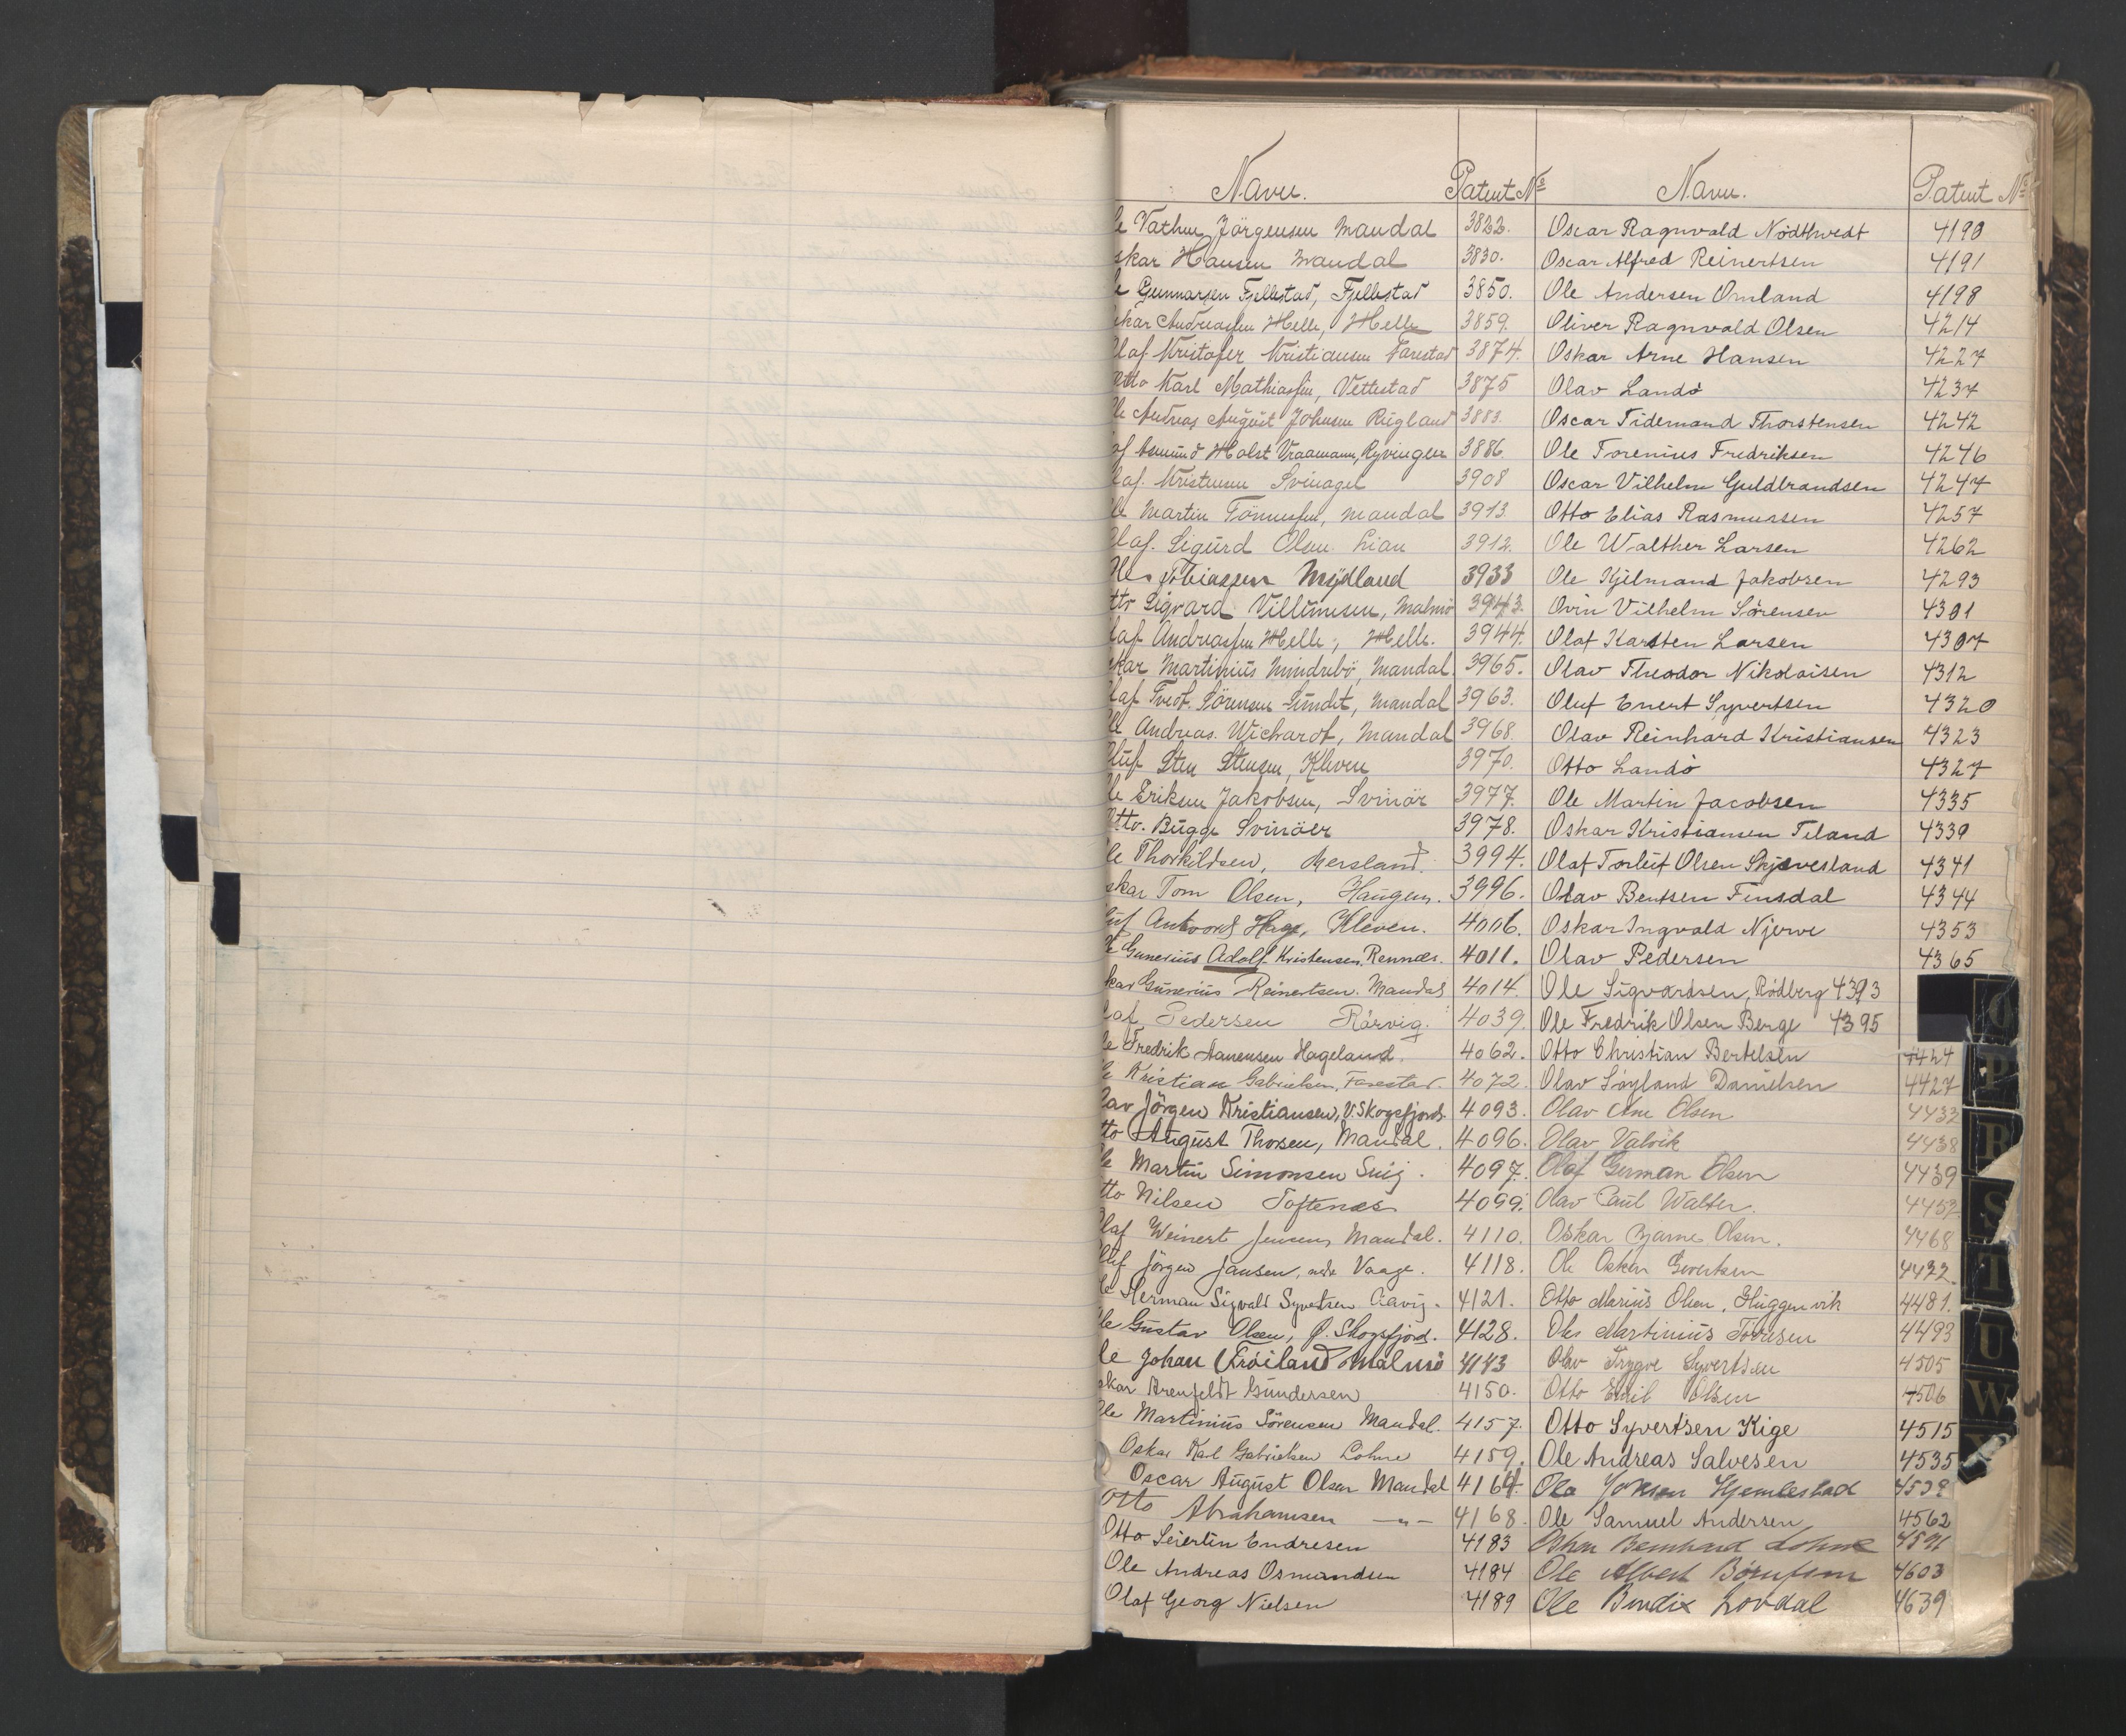 Navn. Patent No
le Vathne Jörgensen Mandal 3822.
skar Hansen Mandal 3830.
le Gunnarsen Fjellestad, Fjellestad 3850.
skar Andreassen Helle, Helle 3859.
Olaf Kristofer Kristiansen Farestad 3874.
Otto Karl Mathiassen, Vettestad 3875
Ole Andreas August Johnsen Rugland 3883.
Holst Vraamann, Ryvingen 3886.
laf. Kristensen Svinager 3908
Ole Martin Tönnessen, Mandal 3913.
Olaf. Sigurd Olsen Lian 3912.
Ole Tobiassen Mydland 3933
tto Sigvard Villumsen, Malmö 3943.
laf Andreassen Helle, Helle. 3944.
skar Martinius Mindrebö, Mandal. 3965.
laf Tvedt. Sörensen Sundet, Mandal 3963.
le Andreas. Wichardt, Mandal 3968.
Oluf Sten Stensen, Kleven 3970.
le Eriksen Jakobsen, Svinör 3977.
Otto. Bugge Svinöer 3978.
le Thorkildsen, 3994.
skar Tom Olsen, Haugen. 3996.
luf Kleven. 4006.
le Gunerius Adolf Kristensen, Rennes. 4011.
kar Gunerius Reinertsen. Mandal 4014.
laf Pedersen Rärvig. 4039.
le Fredrik Aanensen Hageland. 4062.
le Kristian Gabrielsen, Farestad. 4072.
lav Jörgen Kristiansen, V. Skogsfjord. 4093.
tto August Thorsen, Mandal. 4096.
le Martin Simonsen Snig. 4097.
tto Nilsen Toftenes 4099.
Olaf Weinert Jensen Mandal. 4110.
Jörgen Jansen, nedr Vaage. 4118.
le Herman Sigvald Syvertsen 4121.
Ole Gustav Olsen, Ö. Skogsfjord. 4128.
le Johan Fröiland Malmö 4143
skar Arenfeldt Gundersen 4150.
Ole Martinius Sörensen Mandal. 4157.
Oskar Karl Gabrielsen Lohne 4159.
Oscar August Olsen Mandal 4164.
Otto Abrahamsen —"— 4168.
Otto Seiertin Endresen 4183
Ole Andreas Osmundsen 4184
Olaf Georg Nielsen 4189
Navn. Patent No
Oscar Ragnvald Nødthvedt 4190
Oscar Alfred Reinertsen 4191
Ole Andersen Omland 4198
Oliver Ragnvald Olsen 4214
Oskar Arne Hansen 4227
Olav Landö 4237
Oscar Tidemand Thorstensen 4242
Ole Torenius Fredriksen 4246
Oscar Vilhelm Guldbrandsen 4247
Otto Elias Rasmussen 4257
Ole Walther Larsen 4262
Ole Hjelmand Jakobsen 4293
Ovin Vilhelm Sörensen 4301
Olaf Karsten Larsen 4307
Olav Theodor Nikolaisen 4312
Oluf Enert Syvertsen 4320
Olav Reinhard Kristiansen 4323
Otto Landö 4327
Ole Martin Jacobsen 4335
Oskar Kristiansen Tiland 4339
Olaf Torleif Olsen Skjævesland 4341
Olav Bentsen Finsdal 4344
Oskar Ingvald Njerve 4353
Olav Pedersen 4365
Ole Sigvardsen, Rödberg 4393
Ole Fredrik Olsen Berge 4395
Otto Christian Bertelsen 4424
Olav Söyland Danielsen 4427
Olav Arne Olsen 4433
Olav Valvik 4438
Olaf German Olsen 4439
Olav Paul Walter. 4452
Oskar Bjarne Olsen. 4468
Ole Oskar Syvertsen 4472.
Otto Marius Olsen, Skuggenvik 4481.
Ole Martinius Torresen 4493
Olav Trygve Syvertsen 4505
Otto Emil Olsen 4506
Otto Syvertsen Kige 4515
Ole Andreas Salvesen 4535
Ola Johnsen Hjemlestad 4539
Ole Samuel Andersen 4562
Oskar Bernhard Lohne 4591
Ole Albert Börufsen 4603
Ole Bendix Lovdal 4639
O
P
R
S
T
U
W